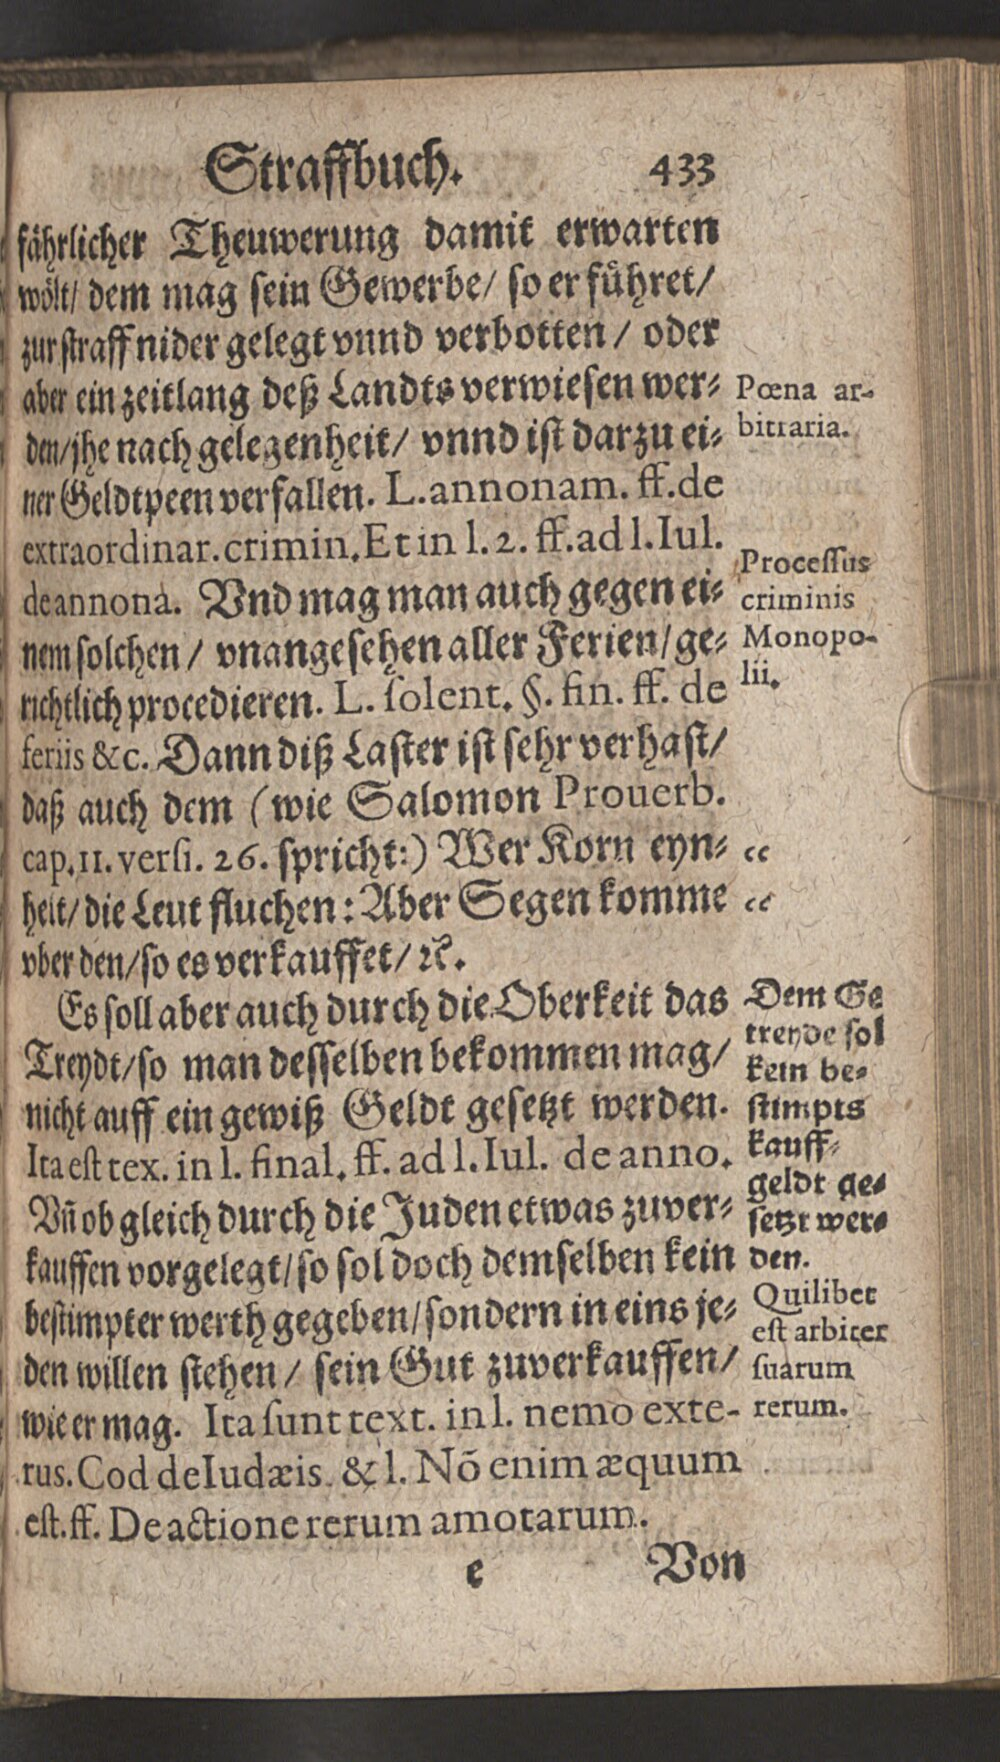 Straffbuch. 433
fährlicher Theuwerung damit erwarten
wölt/ dem mag sein Gewerbe/ so er führet/
zur straff nider gelegt vnnd verbotten / oder
aber ein zeitlang deß Landts verwiesen wer⸗
den/jhe nach gelegenheit/ vnnd ist darzu ei⸗
ner Geldtpeen verfallen. L. annonam. ff. de
extraordinar. crimin. Et in l. 2. ff. ad l. Iul.
de annona. Vnd mag man auch gegen ei⸗
nem solchen / vnangesehen aller Ferien/ge⸗
richtlich procedieren. L. solent. §. fin. ff. de
feriis &c. Dann diß Laster ist sehr verhast/
daß auch dem (wie Salomon Prouerb.
cap. 11. versi. 26. spricht:) Wer Korn eyn⸗
helt/ die Leut fluchen: Aber Segen komme
vber den/so es verkauffet/ ꝛc.
Es soll aber auch durch die Oberkeit das
Treydt/so man desselben bekommen mag/
nicht auff ein gewiß Geldt gesetzt werden.
Ita est tex. in l. final. ff. ad l. Iul. de anno.
Vñ ob gleich durch die Juden etwas zuver⸗
kauffen vorgelegt/so sol doch demselben kein
bestimpter werth gegeben/sondern in eins je⸗
den willen stehen / sein Gut zuverkauffen/
wie er mag. Ita sunt text. in l. nemo exte-
rus. Cod de Iudæis. & l. Nõ enim æquum
est. ff. De actione rerum amotarum.
e Von
Pœna ar-
bitraria.
Processus
criminis
Monopo-
lii.
“
“
Dem Ge
treyde sol
kein be⸗
stimpts
kauff⸗
geldt ge⸗
setzt wer⸗
den.
Quilibet
est arbiter
suarum
rerum.